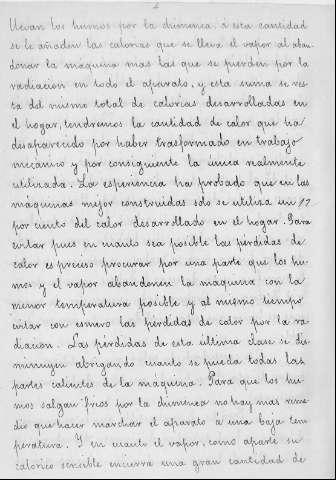 llevan los humos por la chimenea á esta cantidad
se le añaden las calorias que se lleva el vapor al aban
donar la máquina mas las que se pierden por la
radiacion en todo el aparato, y esta suma se res
ta del mismo total de calorias desarrolladas en
el hogar, tendremos la cantidad de calor que ha
desaparecido por haber trasformado en trabajo
mecánico y por consiguiente la unica realmente
utilizada. La esperiencia ha probado que en las
maquinas mejor construidas solo se utiliza un 17
por ciento del calor desarrollado en el hogar. Para
evitar pues en cuanto sea posible las pérdidas de
calor es preciso procurar por una parte que los hu
mos y el vapor abandonen la maquina con la
menor temperatura posible y al mismo tiempo
evitar con esmero las pérdidas de calor por la ra
diacion. Las pérdidas de esta ultima clase se dis
minuyen abrigando cuanto se pueda todas las
partes calientes de la máquina. Para que los hu
mos salgan frios por la chimenea no hay mas reme
dio que hacer marchar el aparato á una baja tem
peratura. Y en cuanto el vapor, como aparte su
calorico sensible encierra una gran cantidad de